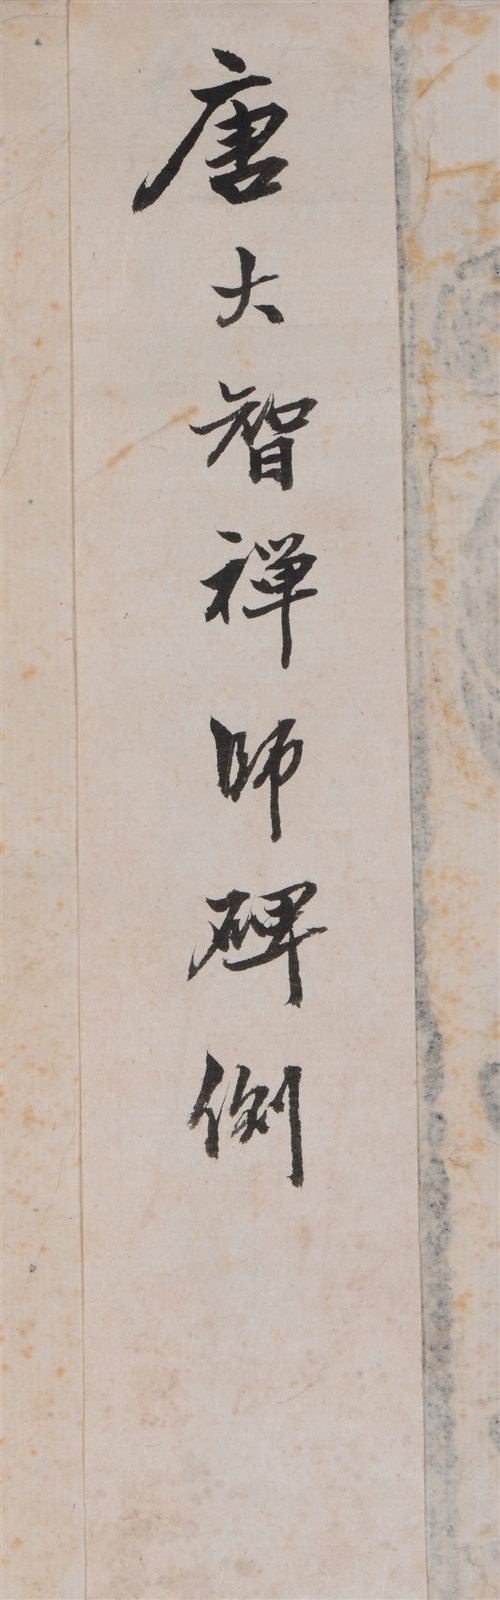 唐大智禅師碑側